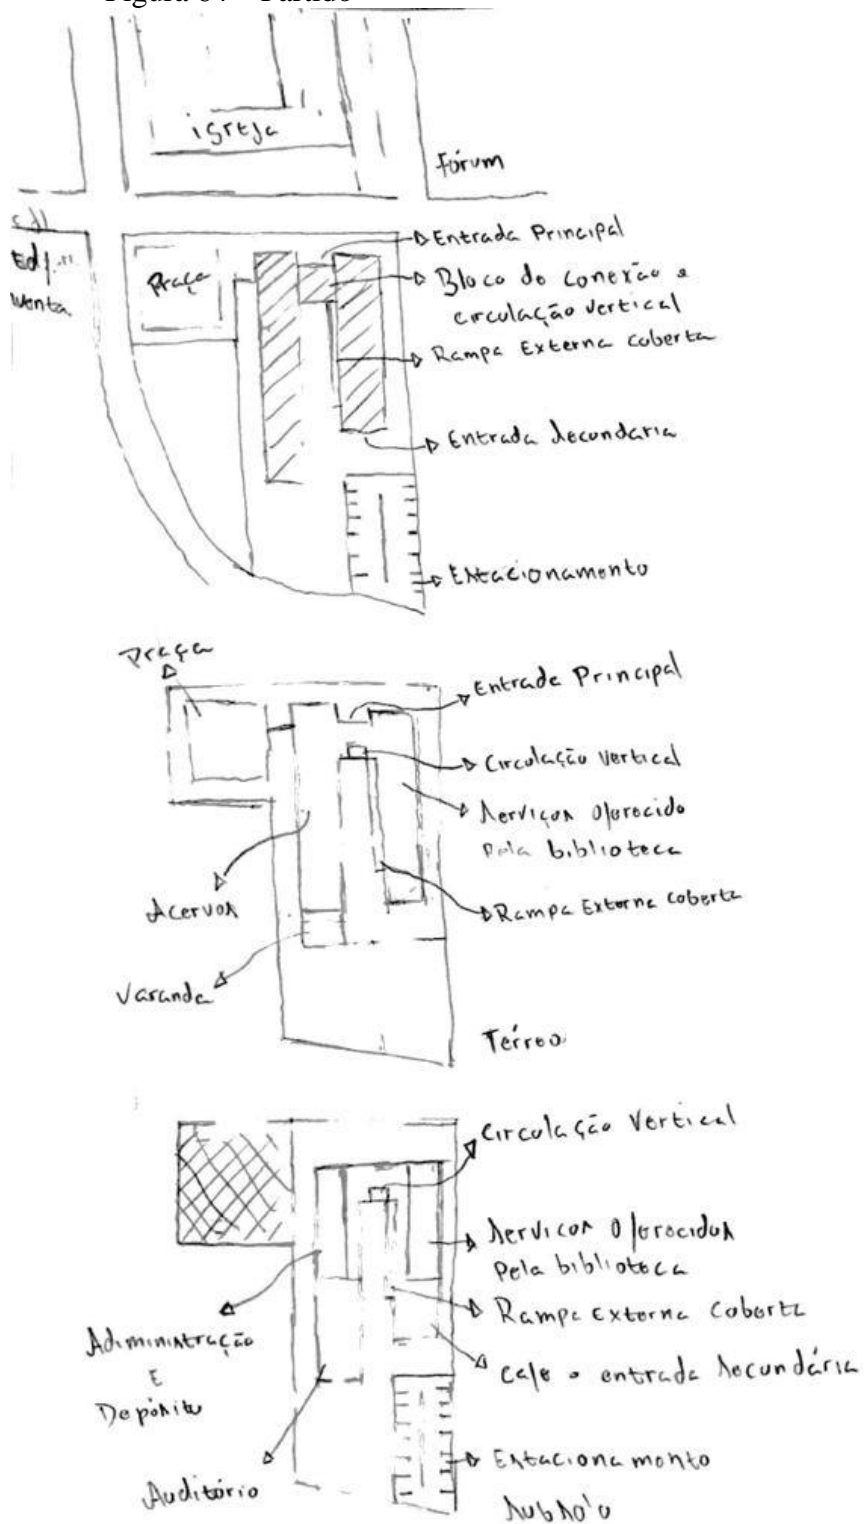 igreja
Fórum
Praça
Entrada Principal
Bloco de conexão e
circulação vertical
Rampa Externa coberta
Entrada secundária
Estacionamento
Praça
Entrada Principal
Circulação vertical
Serviços oferecido
pela biblioteca
Acervos
Rampa Externa coberta
Varanda
Térreo
Circulação Vertical
Serviços Oferecidos
pela biblioteca
Rampa Externa coberta
Administração
E
Depósito
café e entrada secundária
Auditório
Estacionamento
Subsolo